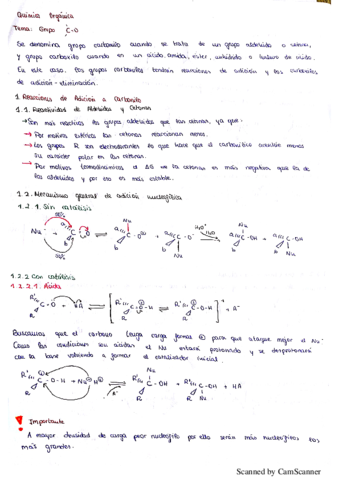 Química Orgánica
Tema: Grupo C=O
Se denomina grupo carbonilo cuando se trata de un grupo aldehído o cetona,
y grupo carboxilo cuando en un ácido, amida, éster, anhídrido o haluro de ácido.
En este caso, los grupos carbonilos tendrán reacciones de adición y los carboxilos
de adición-eliminación.
1. Reacciones de Adición a Carbonilo
1.1. Reactividad de Aldehídos y Cetonas
→ Son más reactivos los grupos aldehídos que las cetonas, ya que:
→ Por motivos estéricos las cetonas reaccionan menos.
→ Los grupos R son electrodonantes lo que hace que el carbonílico acentúe menos
su carácter polar en las cetonas.
→ Por motivos termodinámicos el ΔG de la cetonas es más negativa que la de
los aldehídos y por eso es más estable.
1.2. Mecanismo general de adición nucleofílica
1.2.1. Sin catálisis
50%
Nu⁻
a
b
C
O
50%
Nu
a
b
C-O⁻
+
a
b
C-O⁻
Nu
H₃O⁺
H₂O
Nu
a
b
C-OH
+
a
b
C-OH
Nu
1.2.2 Con catálisis
1.2.2.1. Ácida
R'
R
C=O
+
HA
R'
R
C=O-H
R'
R
C-O-H
+ A⁻
Buscamos que el carbono tenga carga forma ⊕ para que ataque mejor el Nu⁻
Como las condiciones son ácidas el Nu estará protonado y se desprotonará
con la base volviendo a formar el catalizador inicial.
R'
R
C-O-H + Nu-H
A⁻
Nu
R'
R
C-OH
+
R'
R
C-OH
Nu
+ HA
! Importante
A mayor densidad de carga peor nucleófilo por ello serán más nucleófilos los
más grandes.
Scanned by CamScanner